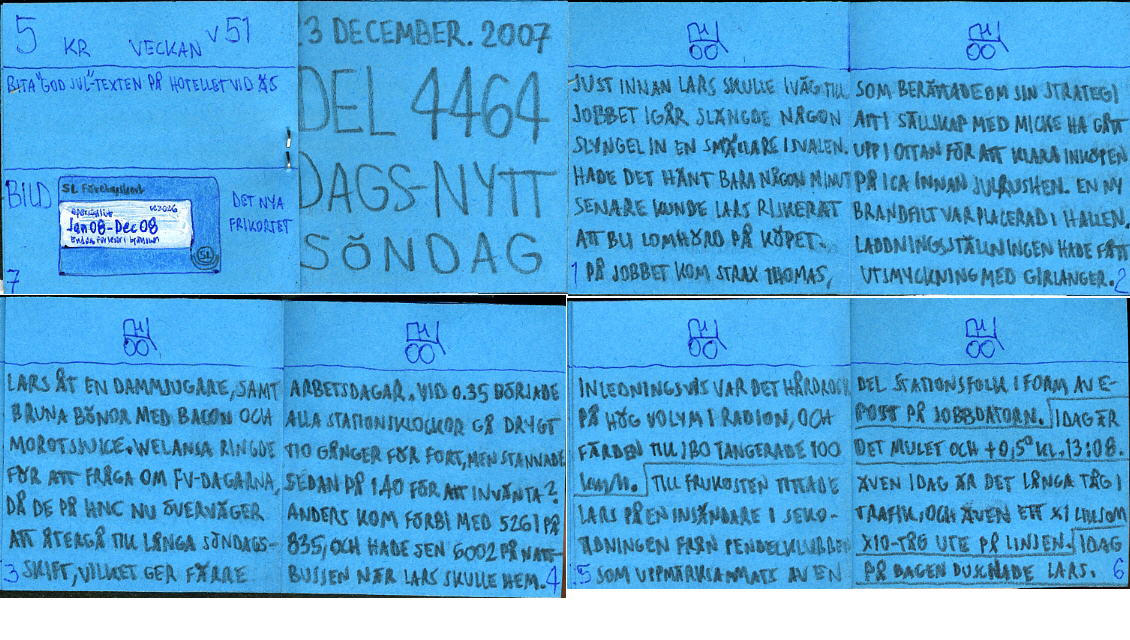 5 KR VECKAN V51
BITA "GOD JUL"-TEXTEN PÅ HOTELLET VID ÄS
BILD
SL Företagskort
Jan 08-Dec 08
DET NYA
FRIKORTET
7
23 DECEMBER. 2007
DEL 4464
DAGS-NYTT
SÖNDAG
JUST INNAN LARS SKULLE IVÄG TILL
JOBBET IGÅR SLÄNGDE NÅGON
SLYNGEL IN EN SMÄLLARE I SVALEN.
HADE DET HÄNT BARA NÅGON MINUT
SENARE KUNDE LARS RISKERAT
ATT BLI LOMHÖRD PÅ KÖPET.
1 PÅ JOBBET KOM STRAX THOMAS,
SOM BERÄTTADE OM SIN STRATEGI
ATT I SÄLLSKAP MED MICKE HA GÅTT
UPP I OTTAN FÖR ATT KLARA INKÖPEN
PÅ ICA INNAN JULRUSHEN. EN NY
BRANDFILT VAR PLACERAD I HALLEN.
LADDNINGSSTÄLLNINGEN HADE FÅTT
UTSMYCKNING MED GIRLANGER. 2
LARS ÅT EN DAMMSUGARE, SAMT
BRUNA BÖNOR MED BACON OCH
MOROTSJUICE. WELANSA RINGDE
FÖR ATT FRÅGA OM FV-DAGARNA,
DÅ DE PÅ HNC NU ÖVERVÄGER
ATT ÅTERGÅ TILL LÅNGA SÖNDAGS-
3 SKIFT, VILKET GER FÄRRE
ARBETSDAGAR. VID 0.35 BÖRJADE
ALLA STATIONSKLOCKOR GÅ DRYGT
TIO GÅNGER FÖR FORT, MEN STANNADE
SEDAN PÅ 1.40 FÖR ATT INVÄNTA?
ANDERS KOM FÖRBI MED 5261 PÅ
835, OCH HADE SEN 6002 PÅ NATT-
BUSSEN NÄR LARS SKULLE HEM. 4
INLEDNINGSVIS VAR DET HÅRDROCK
PÅ HÖG VOLYM I RADION, OCH
FÄRDEN TILL JBO TANGERADE 100
km/h. TILL FRUKOSTEN TITTADE
LARS PÅ EN INSÄNDARE I SEKO-
TIDNINGEN FRÅN PENDELKLUBBEN
5 SOM UPPMÄRKSAMMATS AV EN
DEL STATIONSFOLK I FORM AV E-
POST PÅ JOBBDATORN. IDAG ÄR
DET MULET OCH +0,5° KL. 13:08.
ÄVEN IDAG ÄR DET LÅNGA TÅG I
TRAFIK, OCH ÄVEN ETT X1 LIKSOM
X10-TÅG UTE PÅ LINJEN. IDAG
PÅ DAGEN DUSCHADE LARS. 6